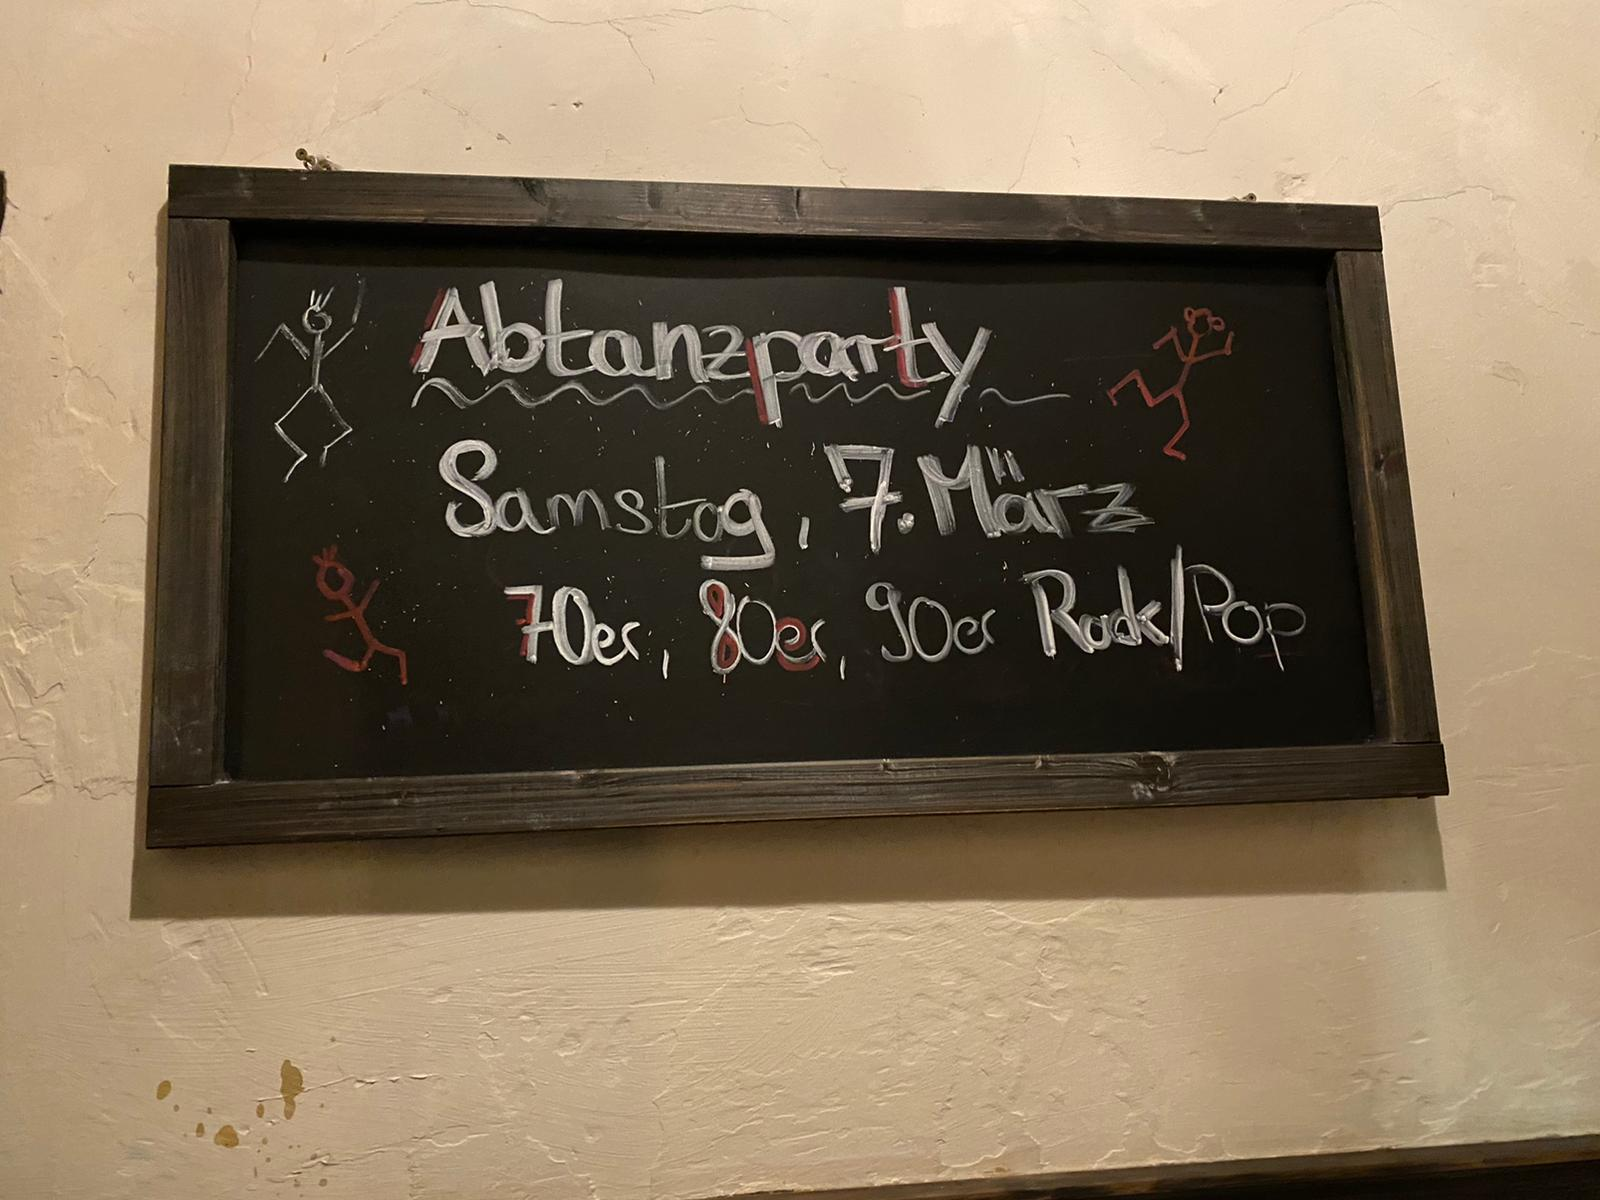 Abtanzparty
Samstag, 7. März
70er, 80er, 90er Rock/Pop